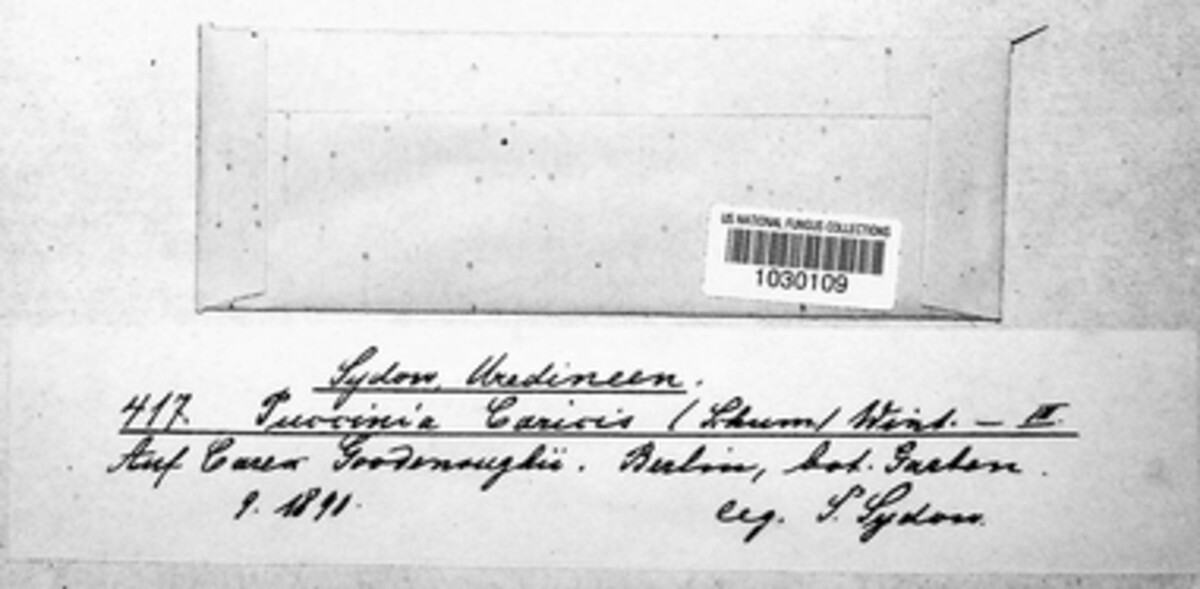 US NATIONAL FUNGUS COLLECTIONS
1030109
Sydow, Uredineen.
417. Puccinia Caricis (Schum) Wint. — III.
Auf Carex Goodenoughii. Berlin, bot. Garten.
9. 1891. leg. P. Sydow.